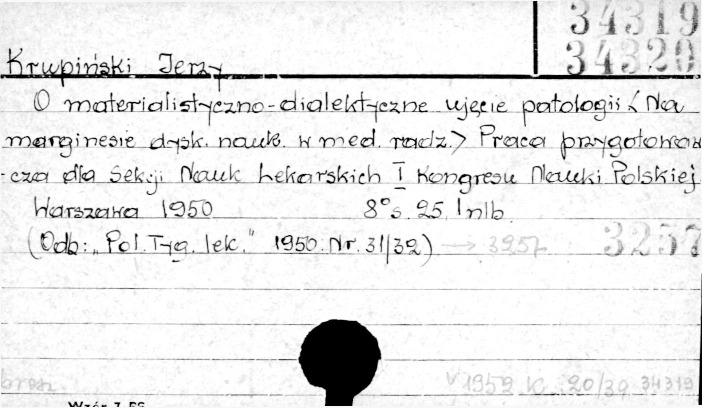 34319
34320
Krupiński Jerzy
O materialistyczno-dialektyczne ujęcie patologii <Na
marginesie dysk. nauk. w med. radz.> Praca przygotowaw
-cza dla Sekcji Nauk Lekarskich I Kongresu Nauki Polskiej
Warszawa 1950 8° s. 25, 1 nlb.
(Odb: „Pol. Tyg. lek." 1950. Nr. 31/32) → 3257 3257
brosz. V 1952 K. 20/39 34319
Wzór 7 BG